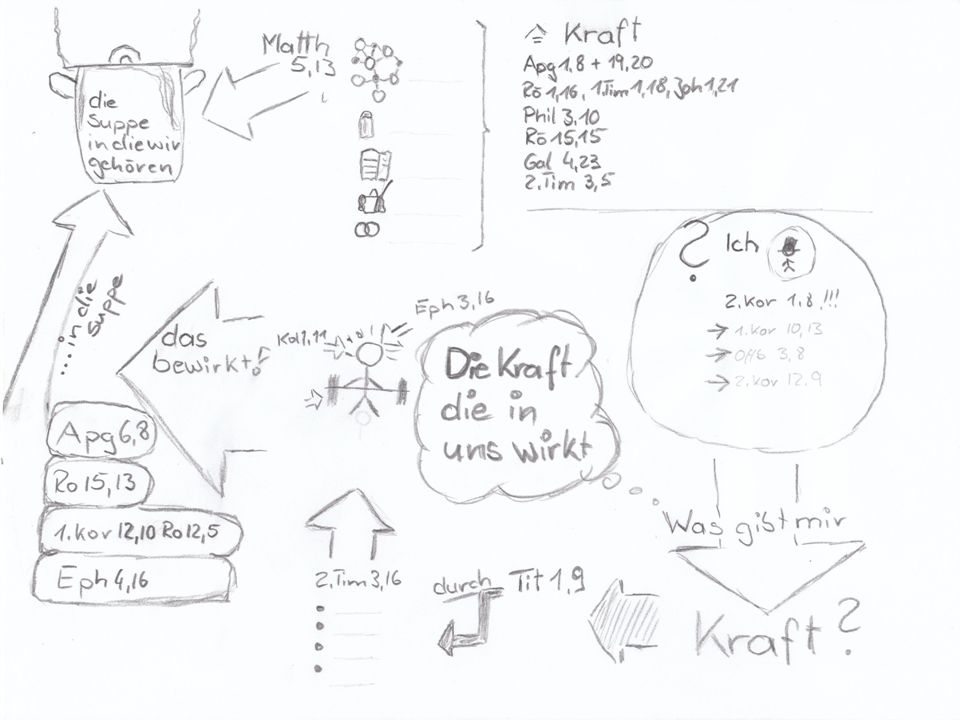 die
Suppe
in die wir
gehören
Matth
5,13
Kraft
Apg 1,8 + 19,20
Rö 1,16, 1.Tim 1,18, Joh 1,21
Phil 3,10
Rö 15,15
Gal 4,23
2.Tim 3,5
? Ich
2.Kor 1,8 !!!
→ 1.Kor 10,13
→ Offb 3,8
→ 2.Kor 12.9
Was gibt mir
Kraft?
durch Tit 1,9
2.Tim 3,16
Die Kraft
die in
uns wirkt
Eph 3,16
Kol 1,11
das
bewirkt!
...in die
Suppe
Apg 6,8
Ro 15,13
1.Kor 12,10 Ro 12,5
Eph 4,16